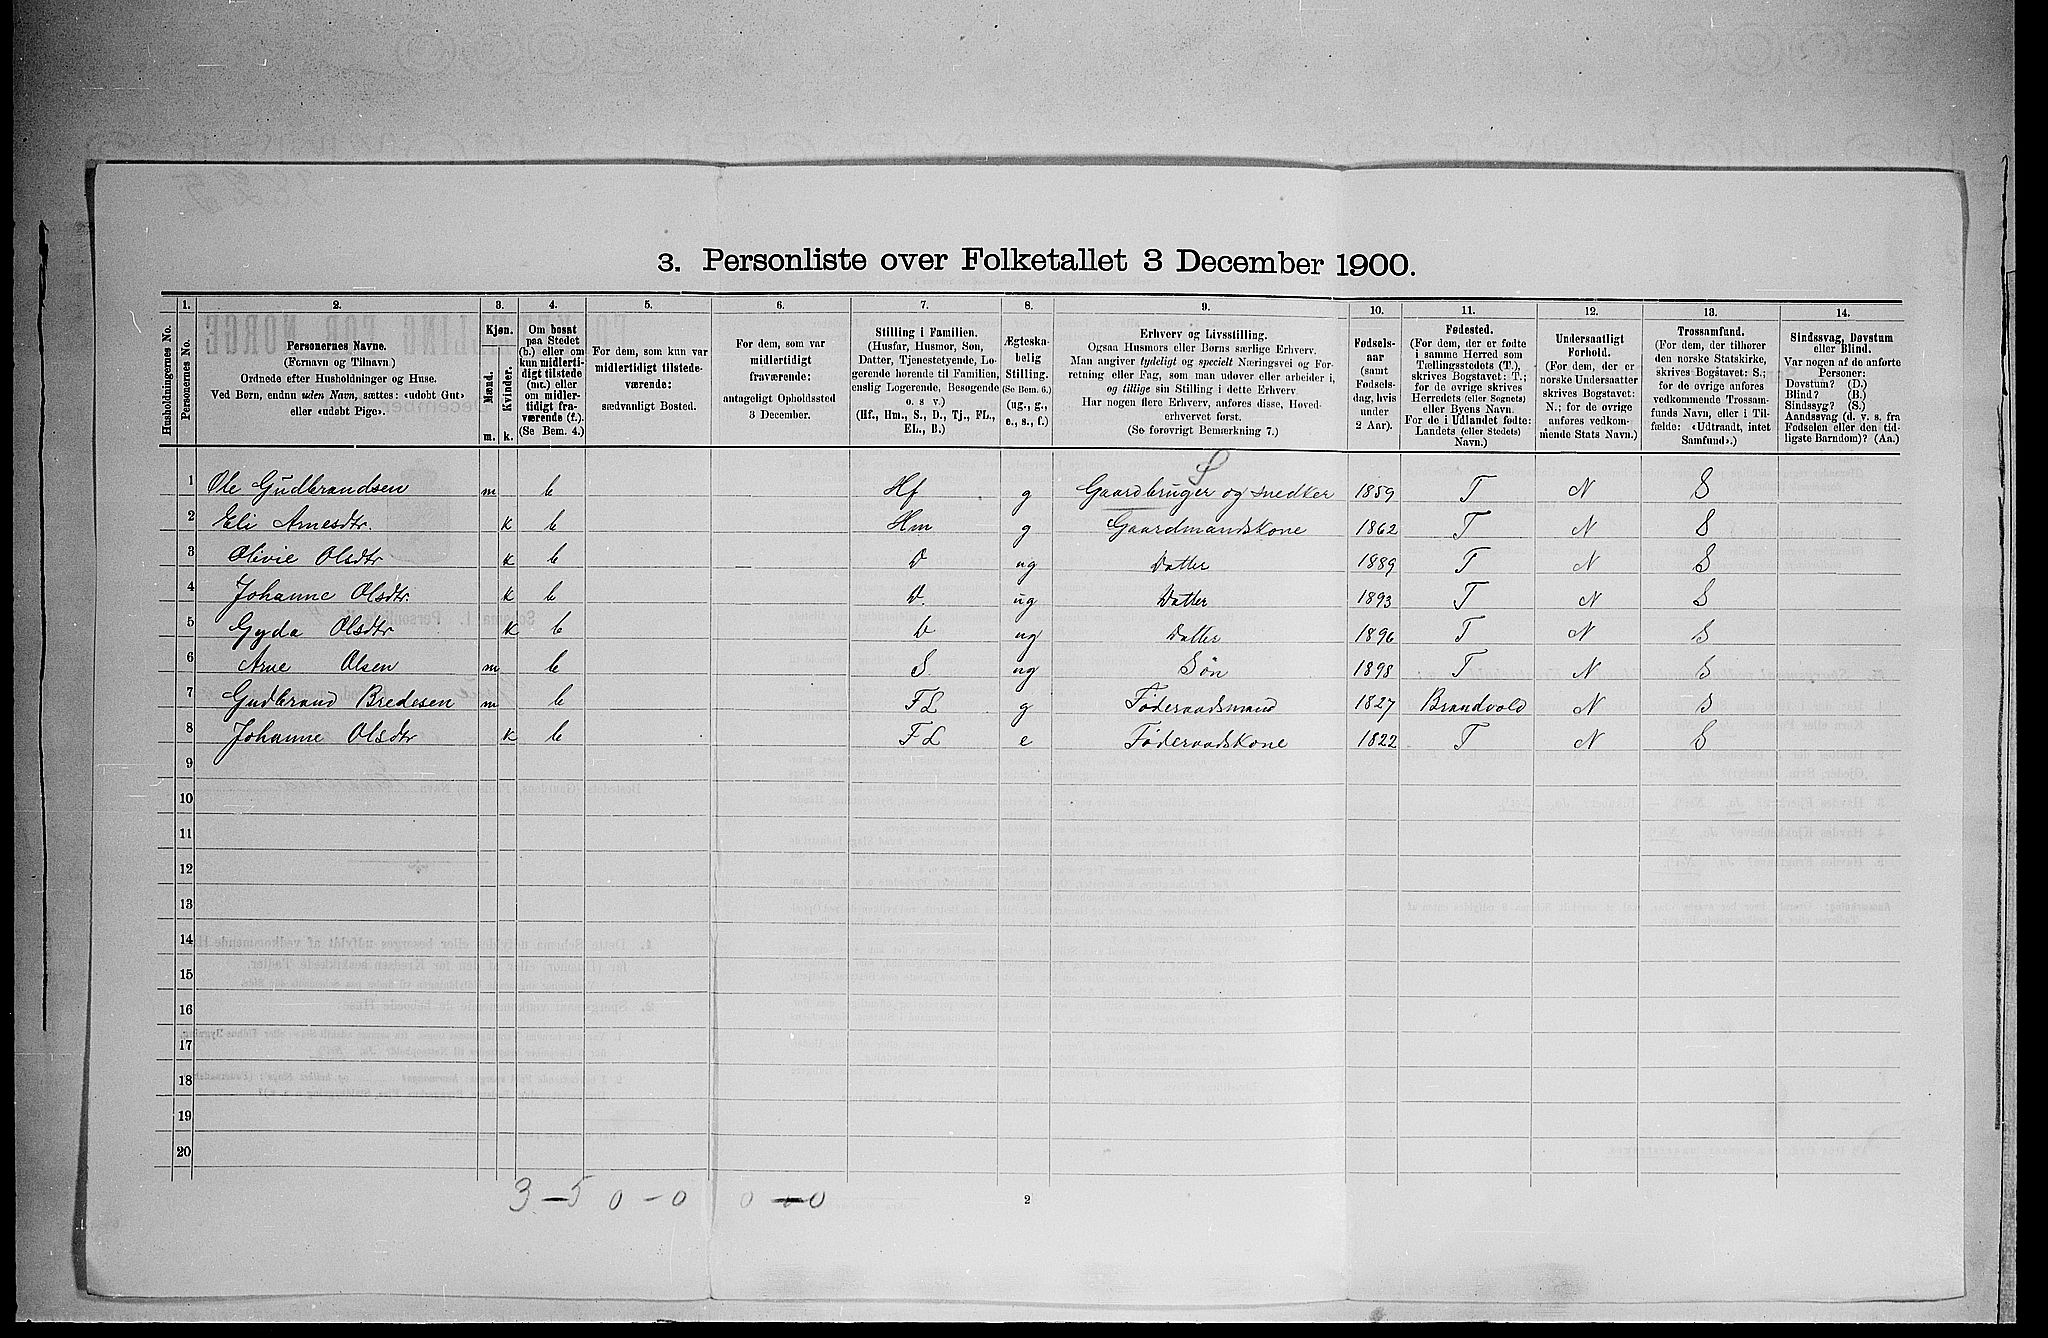 3. Personliste over Folketallet 3 December 1900.
1. 2. 3. 4. 5. 6. 7. 8. 9. 10. 11. 12. 13. 14.
Husholdningernes No.
Personernes No.
Personernes Navne.
(Fornavn og Tilnavn)
Ordnede efter Husholdninger og Huse.
Ved Børn, endnu uden Navn, sættes: «udøbt Gut»
eller «udøbt Pige».
Kjøn.
Mænd.
Kvinder.
m. k.
Om bosat
paa Stedet
(b.) eller om
kun midlerti-
digt tilstede
(mt.) eller
om midler-
tidigt fra-
værende (f.).
(Se Bem. 4.)
For dem, som kun var
midlertidigt tilstede-
værende:
sædvanligt Bosted.
For dem, som var
midlertidigt
fraværende:
antageligt Opholdssted
3 December.
Stilling i Familien.
(Husfar, Husmor, Søn,
Datter, Tjenestetyende, Lo-
gerende hørende til Familien,
enslig Logerende, Besøgende
o. s v.)
(Hf., Hm., S., D., Tj., FL.,
EL., B.)
Ægteska-
belig
Stilling.
(Se Bem. 6.)
(ug., g.,
e., s., f.)
Erhverv og Livsstilling.
Ogsaa Husmors eller Børns særlige Erhverv.
Man angiver tydeligt og specielt Næringsvei og For-
retning eller Fag, som man udøver eller arbeider i,
og tillige sin Stilling i dette Erhverv.
Har nogen flere Erhverv, anføres disse, Hoved-
erhvervet først.
(Se forøvrigt Bemærkning 7.)
Fødsels-
aar
(samt
Fødsels-
dag, hvis
under
2 Aar).
Fødested.
(For dem, der er fødte
i samme Herred som
Tællingsstedets (T.),
skrives Bogstavet: T.;
for de øvrige skrives
Herredets (eller Sognets)
eller Byens Navn.
For de i Udlandet fødte:
Landets (eller Stedets)
Navn.)
Undersaatligt
Forhold.
(For dem, der er
norske Undersaatter
skrives Bogstavet:
N.; for de øvrige
anføres vedkom-
mende Stats Navn.)
Trossamfund.
(For dem, der tilhører
den norske Statskirke,
skrives Bogstavet: S.;
for de øvrige anføres
vedkommende Trossam-
funds Navn, eller i Til-
fælde: «Udtraadt, intet
Samfund».)
Sindssvag, Døvstum
eller Blind.
Var nogen af de anførte
Personer:
Døvstum? (D.)
Blind? (B.)
Sindssyg? (S.)
Aandssvag (d. v. s. fra
Fødselen eller den tid-
ligste Barndom)? (Aa.)
S
1 Ole Gudbrandsen m b Hf g Gaardbruger og snedker 1859 T N S
2 Eli Arnesdtr. k b Hm g Gaardmandskone 1862 T N S
3 Olivie Olsdtr k b D ug Datter 1889 T N S
4 Johanne Olsdtr. k b D. ug Datter 1893 T N S
5 Gyda Olsdtr k b D ug Datter 1896 T N S
6 Arne Olsen m b S. ug Søn 1898 T N S
7 Gudbrand Bredesen m b FL g Føderaadsmand 1827 Brandvold N S
8 Johanne Olsdtr k b FL e Føderaadskone 1822 T N S
9
10
11
12
13
14
15
16
17
18
19
20
3-5 0-0 0-0
2